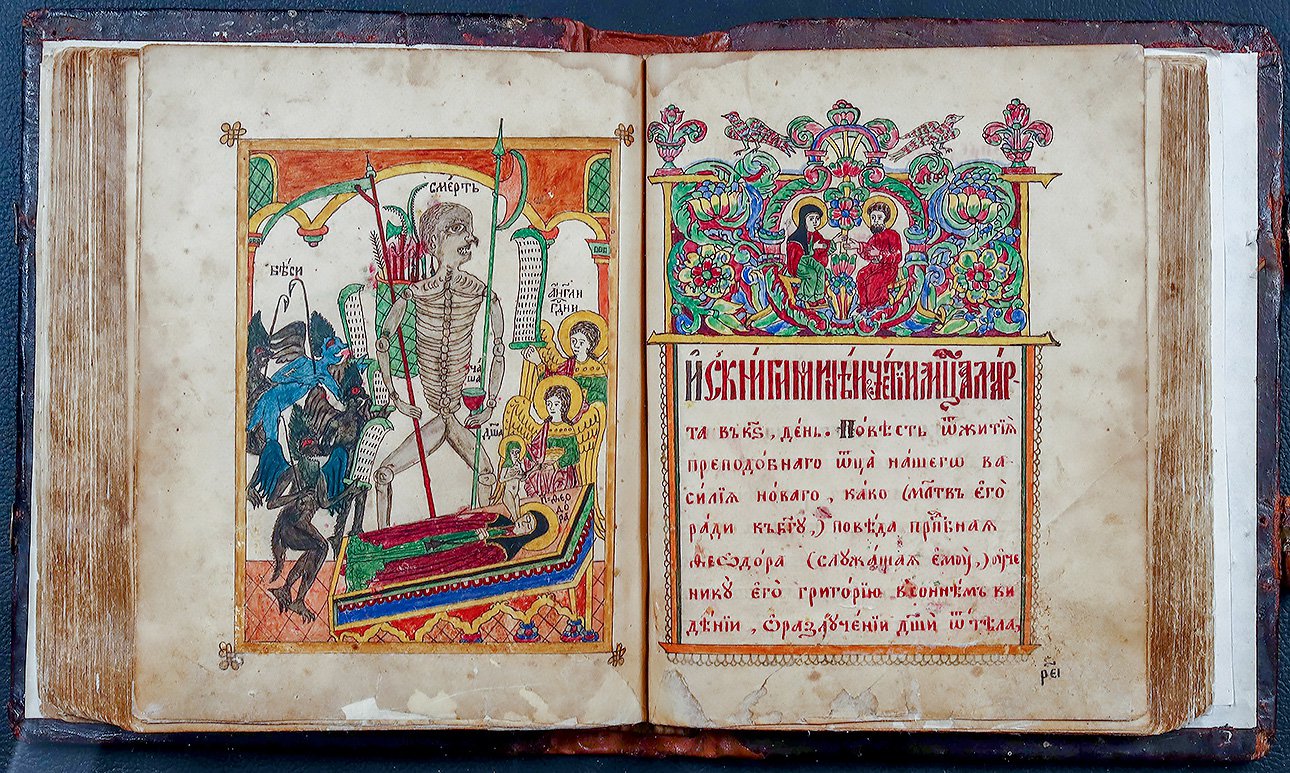 смє́рть
бѣ́си
а҆́нг҃ли
гд҇ни
ча
ша
дш҃а
п· ѳео
до
ра
И҆ скни́ги мине́и че́тїи мц҇а ма́р-
та въ кѕ҃, де́нь. По́вѣсть ѿ житїѧ̀
преподо́бнагѡ ѻ҆ц҃а̀ на́шегѡ ва-
си́лїѧ но́вагѡ, ка́кѡ (мл҃твъ є҆гѡ̀
ра́ди къ бг҃ꙋ,) повѣ́да прпⷣбнаѧ
ѳеѡдо́ра (слꙋжа́щаѧ є҆мꙋ̀,) ᲂу҆че
никꙋ̀ є҆гѡ̀ григо́рїю в со́ннѣмъ ви
дѣ́нїи, ѡ҆ разлꙋче́нїи дш҃и́ ѿ тѣ́ла,
рєı